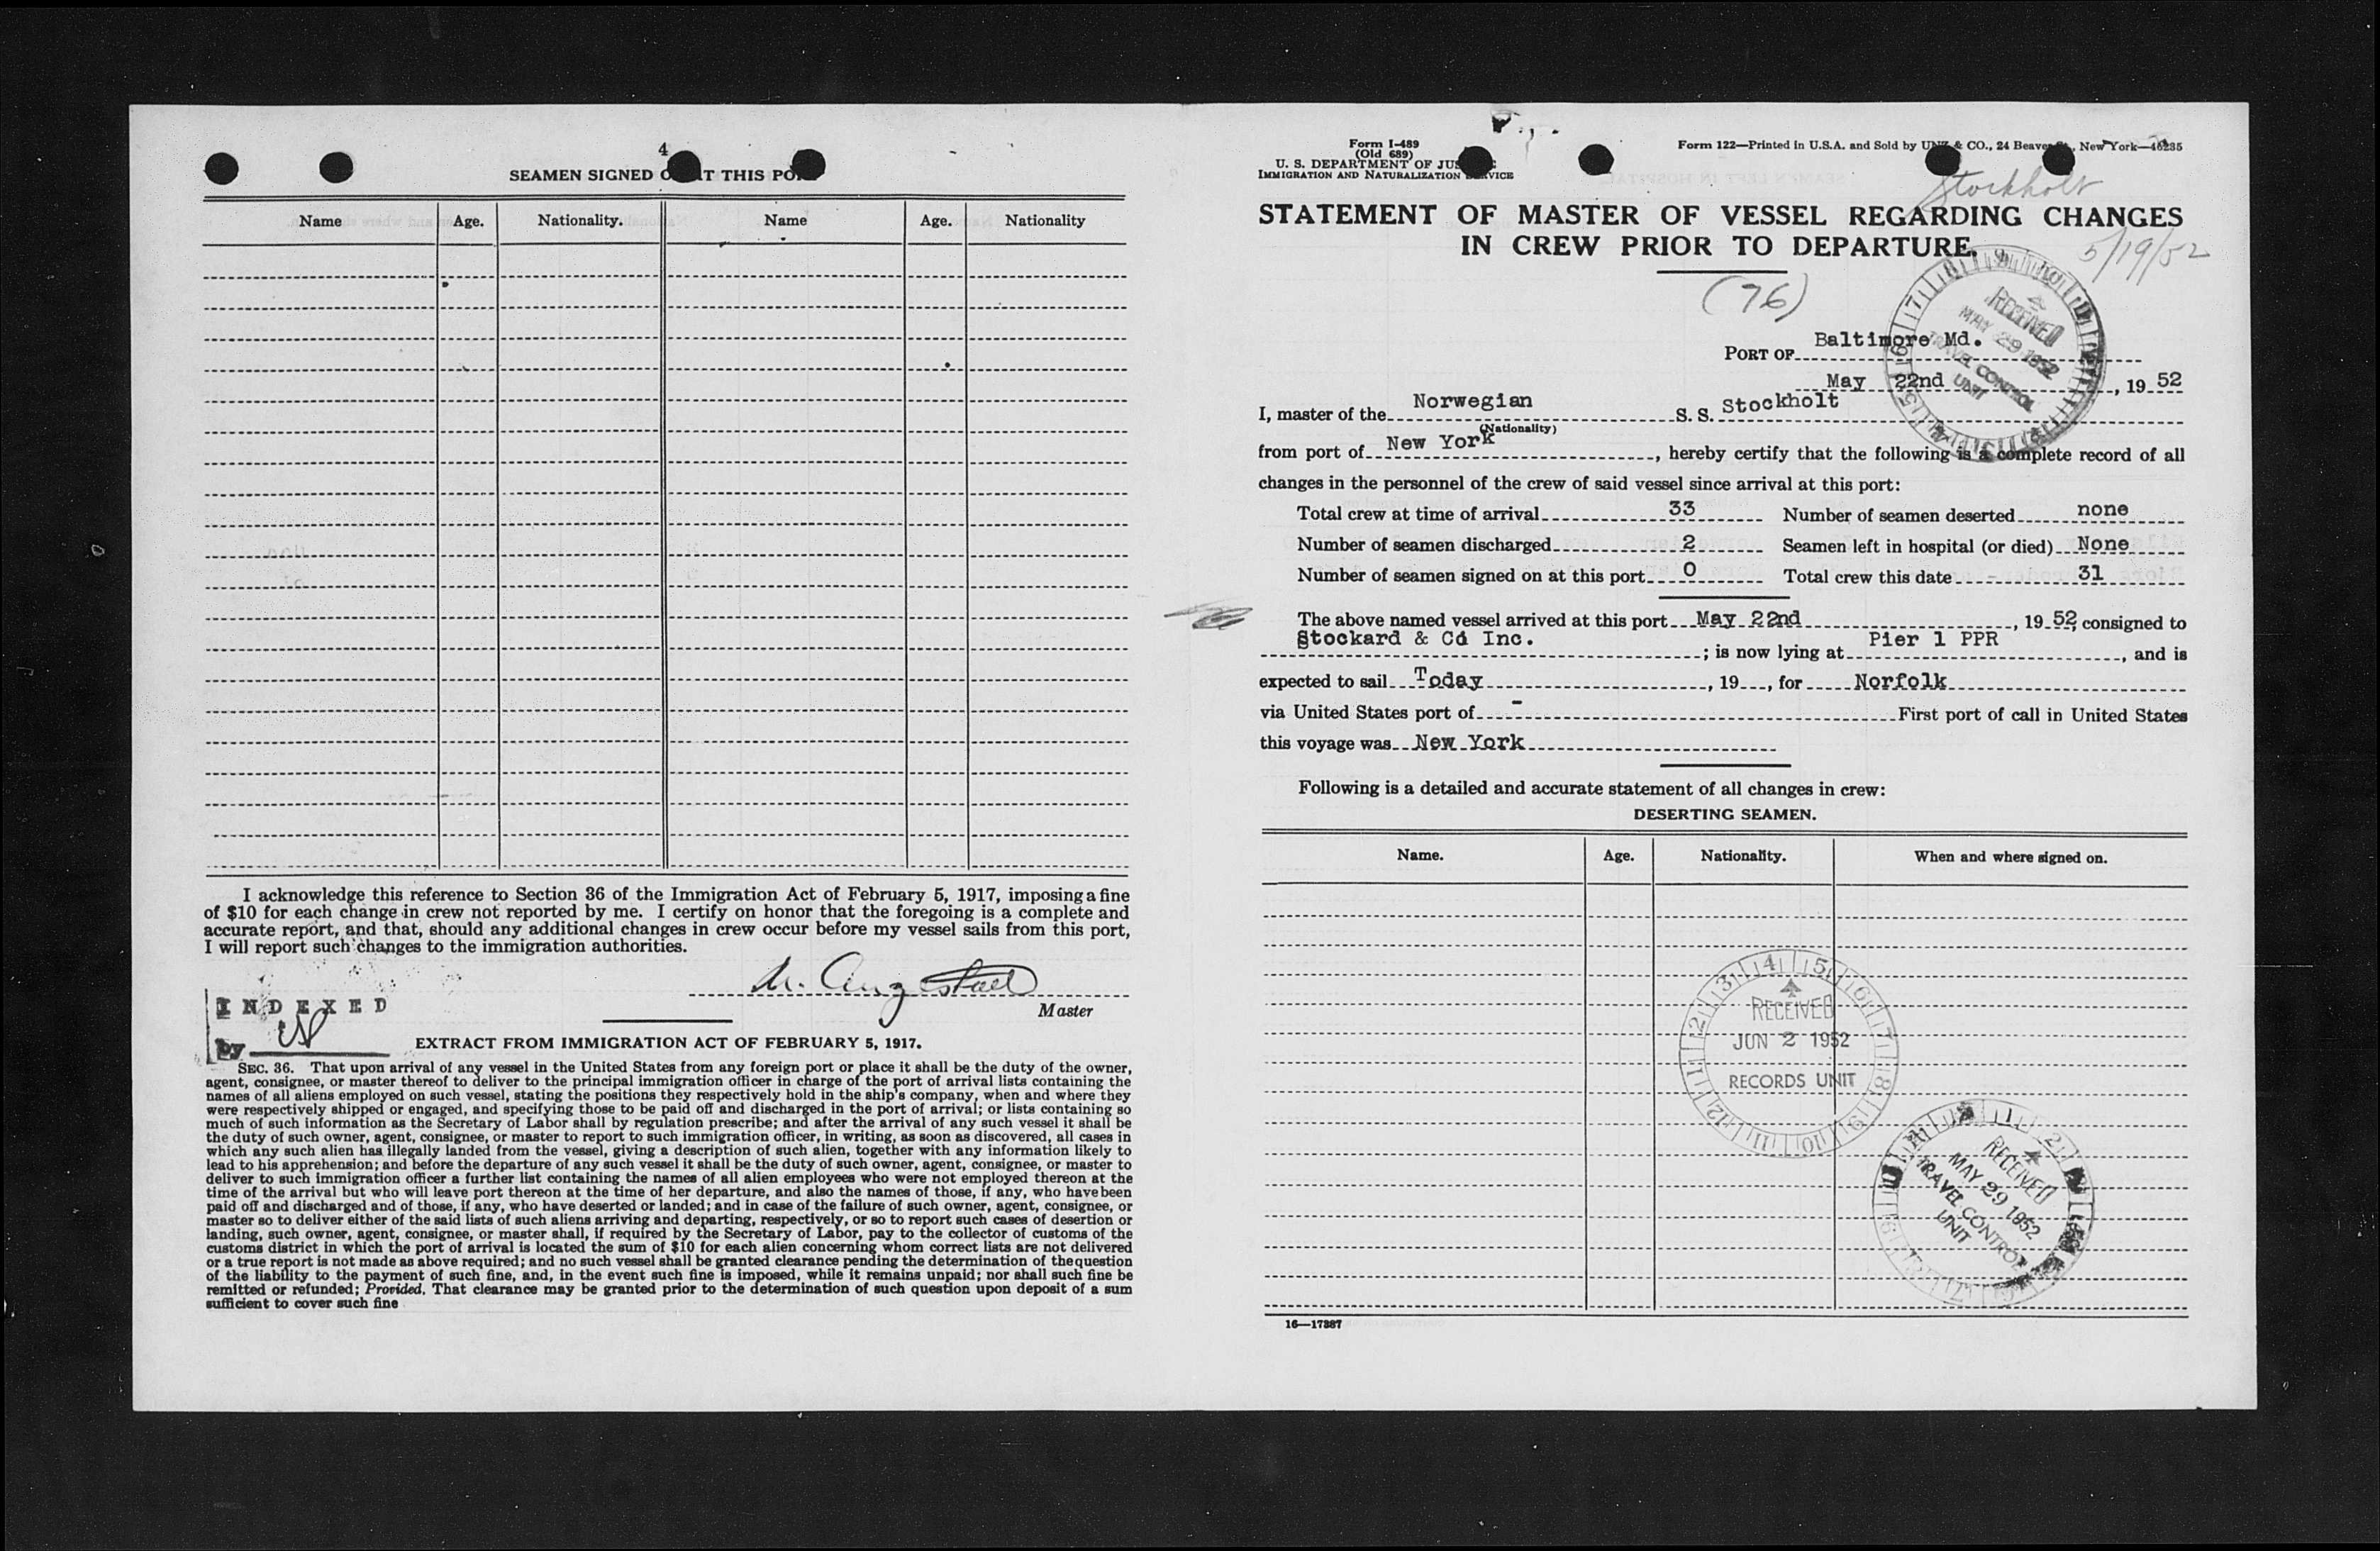 4
SEAMEN SIGNED O AT THIS PO
Name Age. Nationality. Name Age. Nationality
I acknowledge this reference to Section 36 of the Immigration Act of February 5, 1917, imposing a fine
of $10 for each change in crew not reported by me. I certify on honor that the foregoing is a complete and
accurate report, and that, should any additional changes in crew occur before my vessel sails from this port,
I will report such changes to the immigration authorities.
Master
INDEXED
by
EXTRACT FROM IMMIGRATION ACT OF FEBRUARY 5, 1917.
SEC. 36. That upon arrival of any vessel in the United States from any foreign port or place it shall be the duty of the owner,
agent, consignee, or master thereof to deliver to the principal immigration officer in charge of the port of arrival lists containing the
names of all aliens employed on such vessel, stating the positions they respectively hold in the ship's company, when and where they
were respectively shipped or engaged, and specifying those to be paid off and discharged in the port of arrival; or lists containing so
much of such information as the Secretary of Labor shall by regulation prescribe; and after the arrival of any such vessel it shall be
the duty of such owner, agent, consignee, or master to report to such immigration officer, in writing, as soon as discovered, all cases in
which any such alien has illegally landed from the vessel, giving a description of such alien, together with any information likely to
lead to his apprehension; and before the departure of any such vessel it shall be the duty of such owner, agent, consignee, or master to
deliver to such immigration officer a further list containing the names of all alien employees who were not employed thereon at the
time of the arrival but who will leave port thereon at the time of her departure, and also the names of those, if any, who have been
paid off and discharged and of those, if any, who have deserted or landed; and in case of the failure of such owner, agent, consignee, or
master so to deliver either of the said lists of such aliens arriving and departing, respectively, or so to report such cases of desertion or
landing, such owner, agent, consignee, or master shall, if required by the Secretary of Labor, pay to the collector of customs of the
customs district in which the port of arrival is located the sum of $10 for each alien concerning whom correct lists are not delivered
or a true report is not made as above required; and no such vessel shall be granted clearance pending the determination of the question
of the liability to the payment of such fine, and, in the event such fine is imposed, while it remains unpaid; nor shall such fine be
remitted or refunded; Provided, That clearance may be granted prior to the determination of such question upon deposit of a sum
sufficient to cover such fine
Form I-489
(Old 689)
U. S. DEPARTMENT OF JUS
IMMIGRATION AND NATURALIZATION SERVICE
Form 122—Printed in U.S.A. and Sold by UNZ & CO., 24 Beaver St., New York—46235
Stockholt
STATEMENT OF MASTER OF VESSEL REGARDING CHANGES
IN CREW PRIOR TO DEPARTURE.
5/19/52
(76)
RECEIVED
MAY 29 1952
TRAVEL CONTROL
UNIT
PORT OF Baltimore Md.
May 22nd, 19 52
I, master of the Norwegian S. S. Stockholt
(Nationality)
from port of New York, hereby certify that the following is a complete record of all
changes in the personnel of the crew of said vessel since arrival at this port:
Total crew at time of arrival 33 Number of seamen deserted none
Number of seamen discharged 2 Seamen left in hospital (or died) None
Number of seamen signed on at this port 0 Total crew this date 31
The above named vessel arrived at this port May 22nd, 19 52, consigned to
Stockard & Co Inc.; is now lying at Pier 1 PPR, and is
expected to sail Today, 19, for Norfolk
via United States port of - First port of call in United States
this voyage was New York
Following is a detailed and accurate statement of all changes in crew:
DESERTING SEAMEN.
Name. Age. Nationality. When and where signed on.
RECEIVED
JUN 2 1952
RECORDS UNIT
RECEIVED
MAY 29 1952
TRAVEL CONTROL
UNIT
16—17387